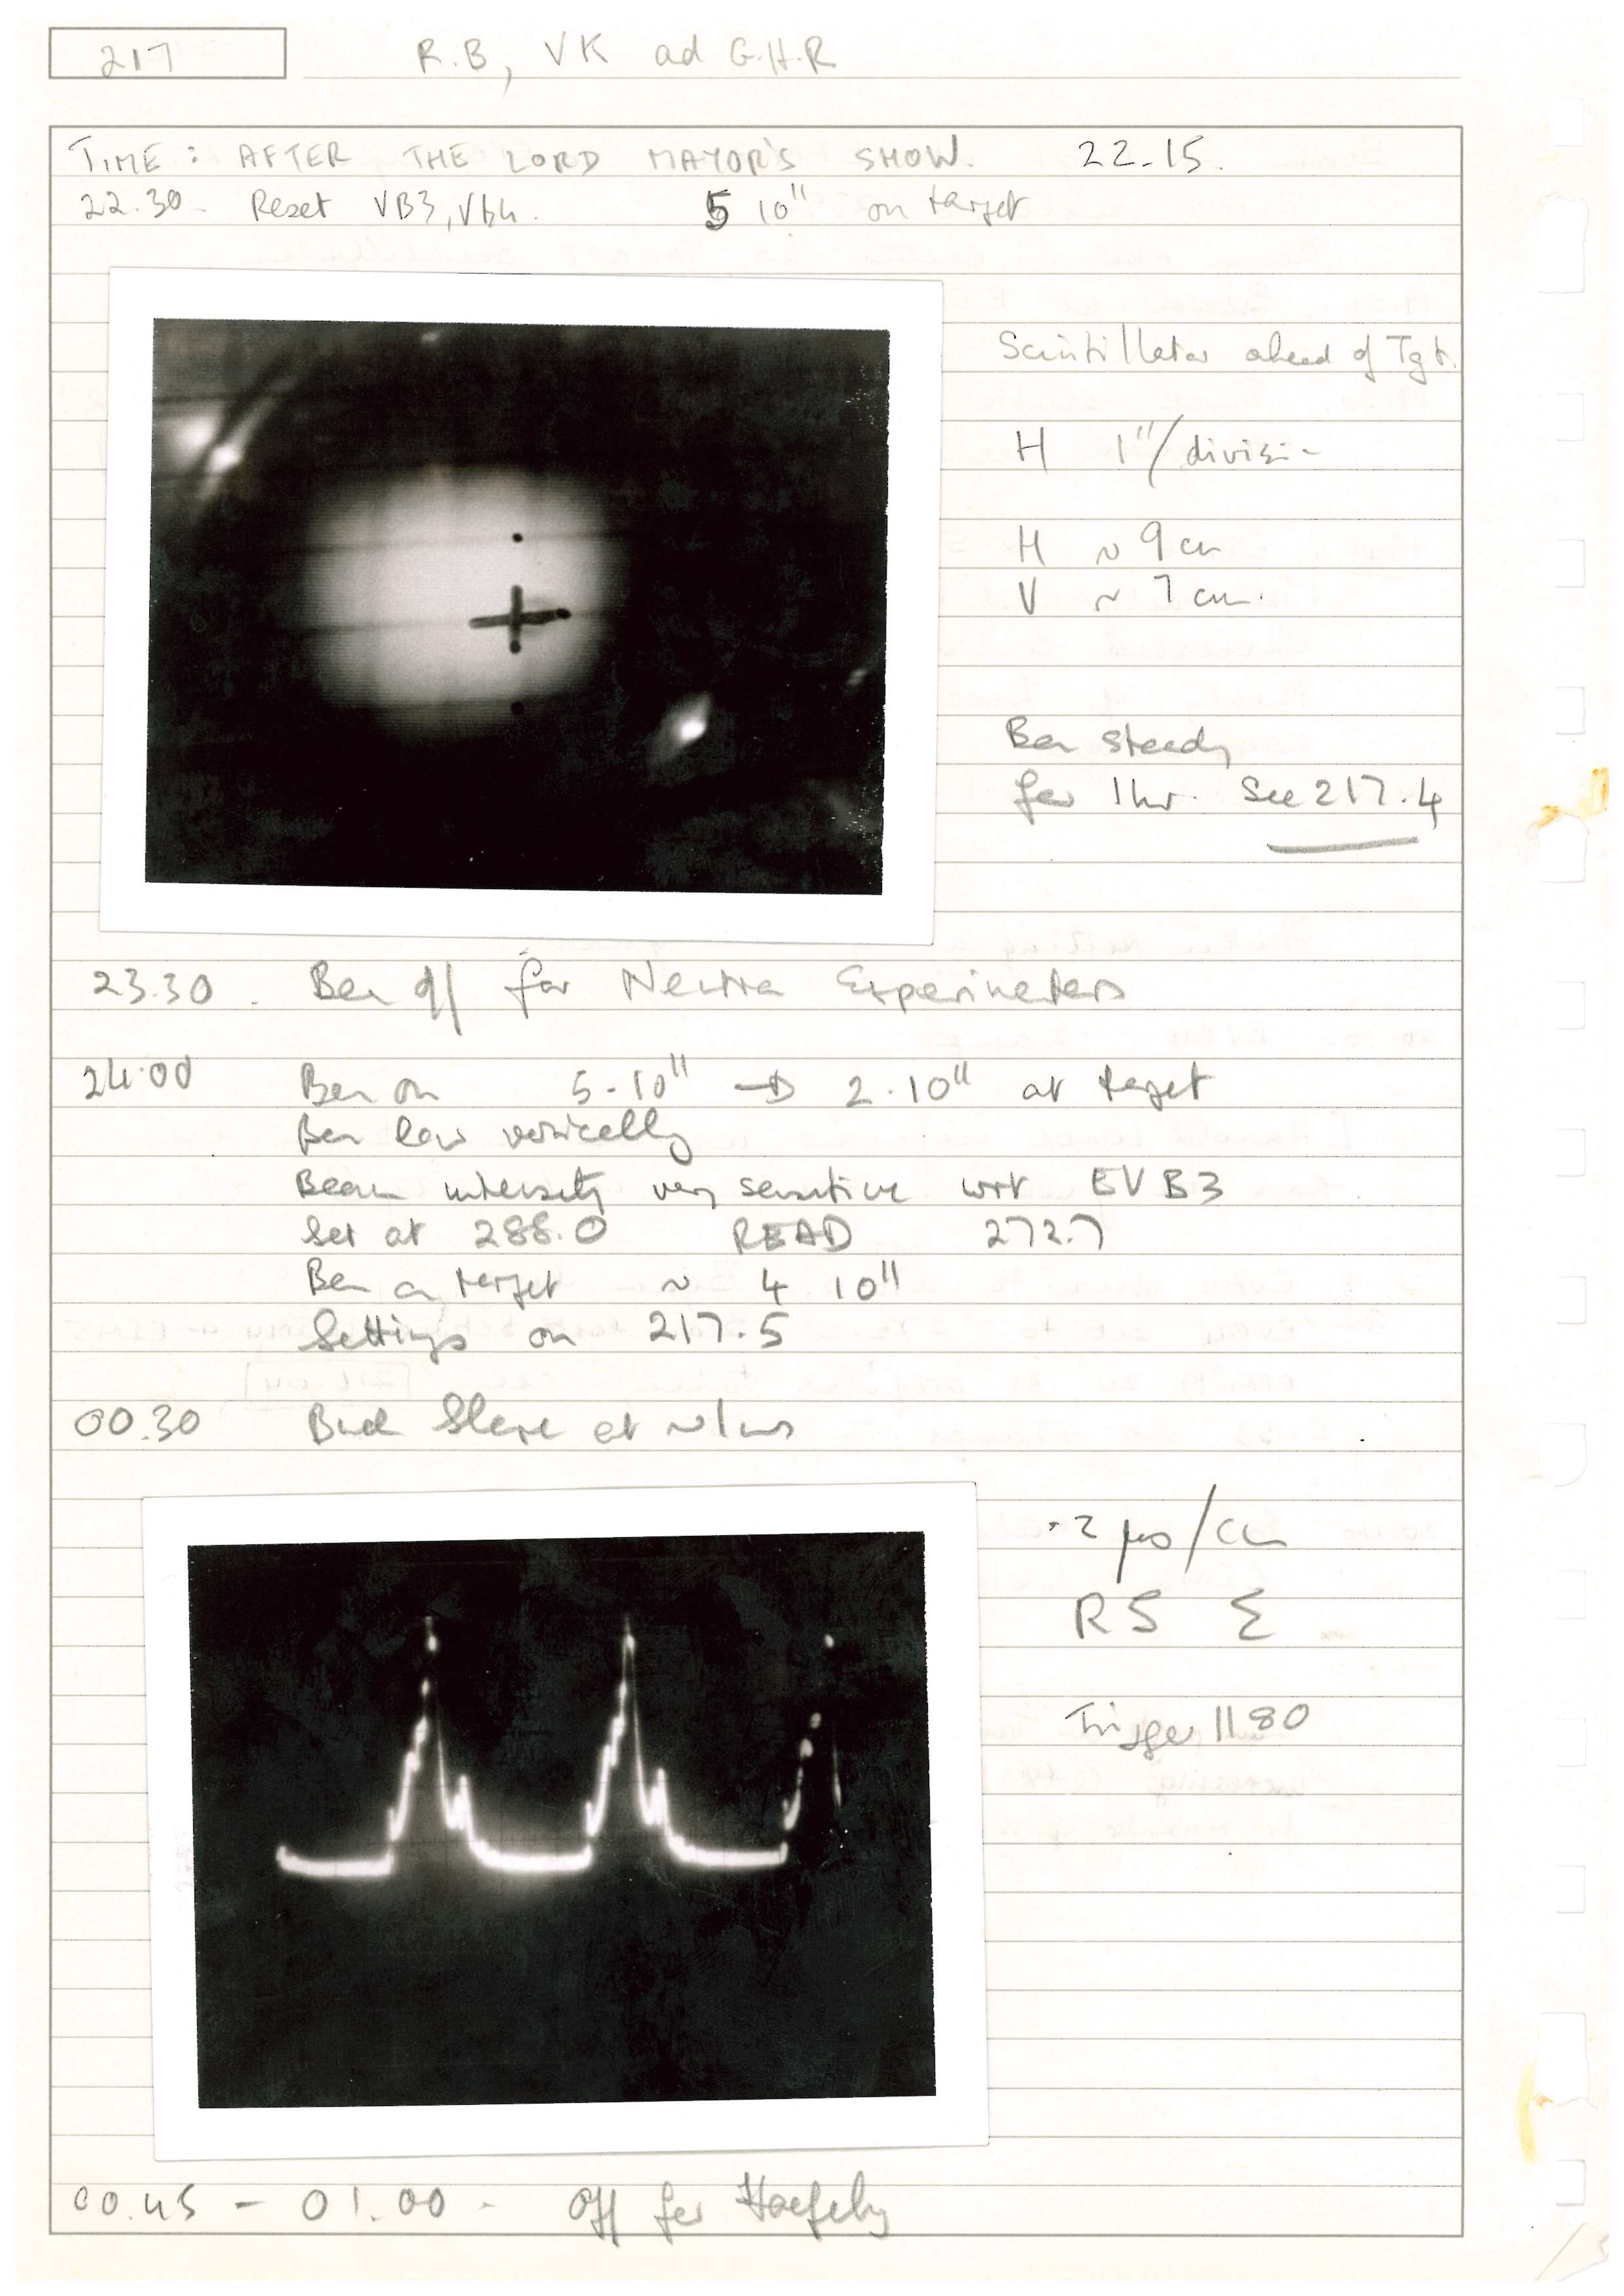 217
R.B, VK ad G.H.R
TIME: AFTER THE LORD MAYOR'S SHOW. 22.15.
22.30. Reset VB3, Vb4. 5 10" on target
Scintillator ahead of Tgt.
H 1"/divisi-
H ~ 9 cm
V ~ 7 cm.
Bea steady
for 1hr. See 217.4
23.30. Bea off for Neutra Experimeters
24.00 Bea on 5.10" → 2.10" at target
Bea low vertically
Beam intensity very sensitive wrt EVB3
Set at 288.0 READ 272.7
Bea on target ~ 4 10"
Settings on 217.5
00.30
·2 µs/cm
R5 Σ
Trigger 1180
00.45 - 01.00 - Off for